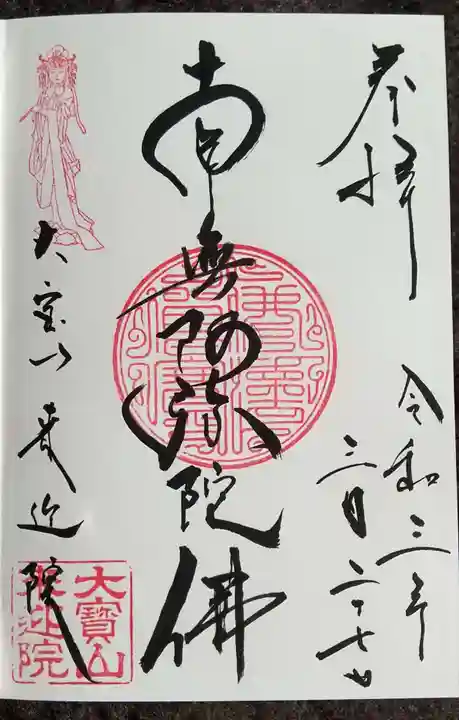 奉拝
令和三年
三月二十七日
南無阿弥陀佛
大宝山 迎院
大寶山
迎院